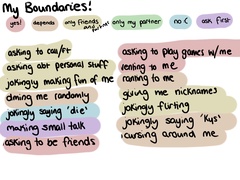 My Boundaries!
yes! depends only friends and partner only my partner no :( ask first
asking to call/ft
asking abt personal stuff
jokingly making fun of me
dming me randomly
jokingly saying 'die'
making small talk
asking to be friends
asking to play games w/me
venting to me
ranting to me
giving me nicknames
jokingly flirting
jokingly saying 'kys'
cursing around me